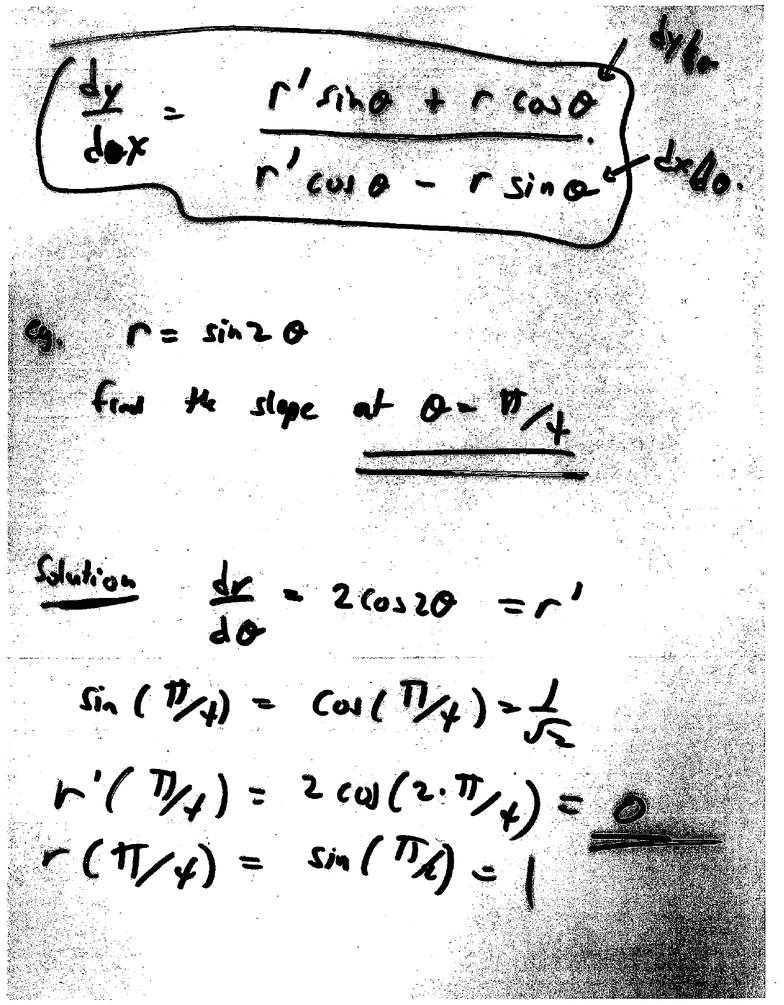 dy/dx = (r' sinθ + r cosθ) / (r' cosθ - r sinθ)
dy/dθ
dx/dθ.
eg. r = sin2θ
find the slope at θ = π/4
Solution dr/dθ = 2cos2θ = r'
sin(π/4) = cos(π/4) = 1/√2
r'(π/4) = 2 cos(2·π/4) = 0
r(π/4) = sin(π/2) = 1